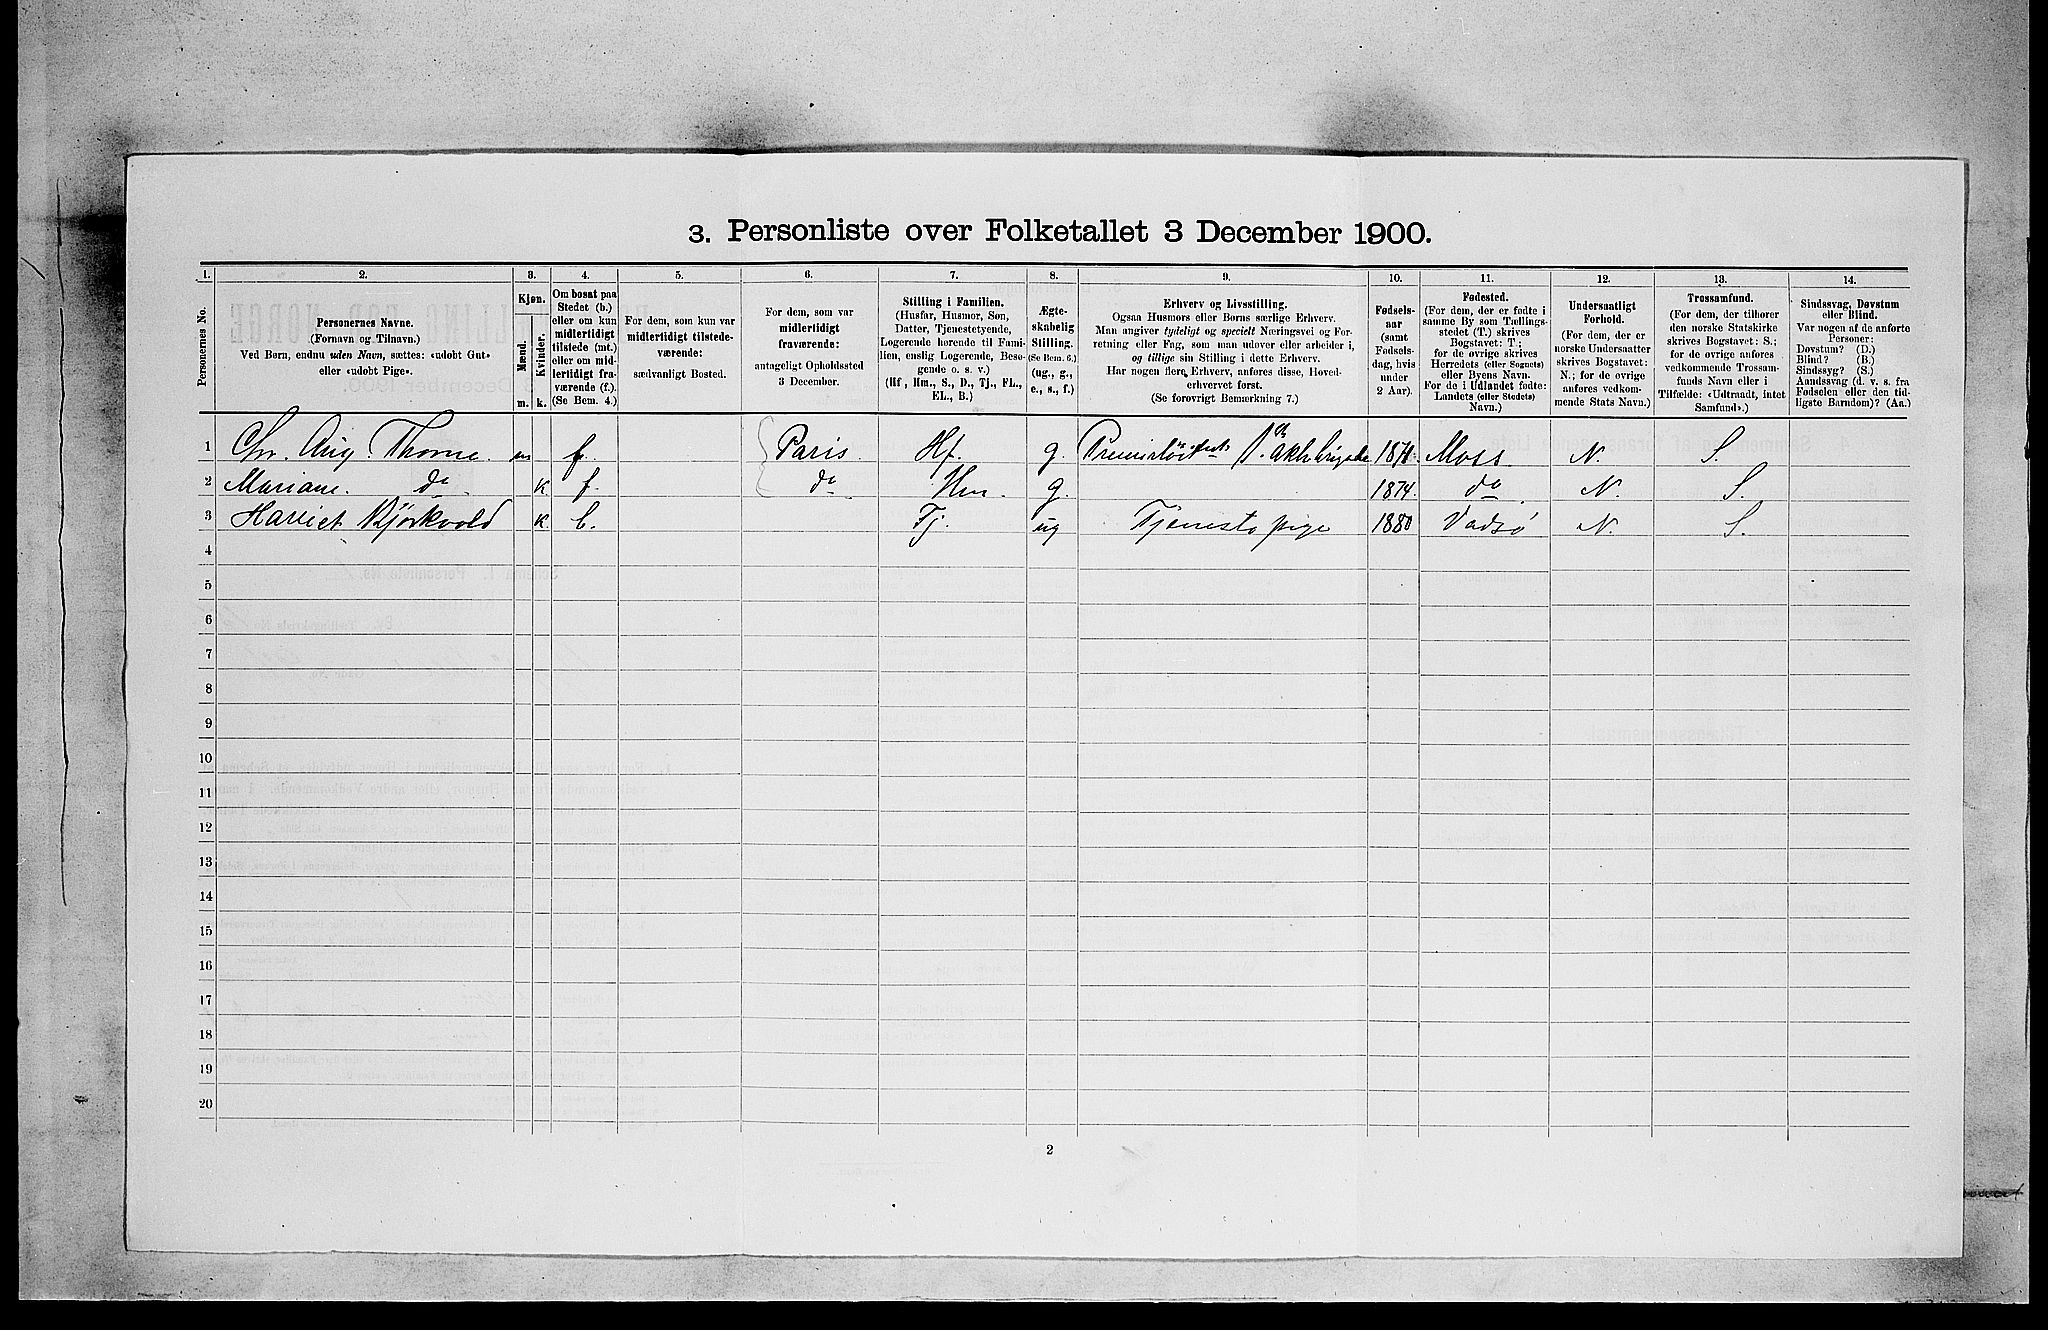 3. Personliste over Folketallet 3 December 1900.
1. 2. 3. 4. 5. 6. 7. 8. 9. 10. 11. 12. 13. 14.
Personernes No.
Personernes Navne.
(Fornavn og Tilnavn.)
Ved Børn, endnu uden Navn, sættes: «udøbt Gut»
eller «udøbt Pige».
Kjøn.
Mænd.
Kvinder.
m. k.
Om bosat paa
Stedet (b.)
eller om kun
midlertidigt
tilstede (mt.)
eller om mid-
lertidigt fra-
værende (f.)
(Se Bem. 4.)
For dem, som kun var
midlertidigt tilstede-
værende:
sædvanligt Bosted.
For dem, som var
midlertidigt
fraværende:
antageligt Opholdssted
3 December.
Stilling i Familien.
(Husfar, Husmor, Søn,
Datter, Tjenestetyende,
Logerende hørende til Fami-
lien, enslig Logerende, Besø-
gende o. s. v.)
(Hf, Hm., S., D., Tj., FL.,
EL., B.)
Ægte-
skabelig
Stilling.
(Se Bem. 6.)
(ug., g.,
e., s., f.)
Erhverv og Livsstilling.
Ogsaa Husmors eller Børns særlige Erhverv.
Man angiver tydeligt og specielt Næringsvei og For-
retning eller Fag, som man udøver eller arbeider i,
og tillige sin Stilling i dette Erhverv.
Har nogen flere Erhverv, anføres disse, Hoved-
erhvervet først.
(Se forøvrigt Bemærkning 7.)
Fødsels-
aar
(samt
Fødsels-
dag, hvis
under
2 Aar).
Fødested.
(For dem, der er fødte i
samme By som Tællings-
stedet (T.) skrives
Bogstavet: T;
for de øvrige skrives
Herredets (eller Sognets)
eller Byens Navn.
For de i Udlandet fødte:
Landets (eller Stedets)
Navn.)
Undersaatligt
Forhold.
(For dem, der er
norske Undersaatter
skrives Bogstavet:
N.; for de øvrige
anføres vedkom-
mende Stats Navn.)
Trossamfund.
(For dem, der tilhører
den norske Statskirke
skrives Bogstavet: S.;
for de øvrige anføres
vedkommende Trossam-
funds Navn eller i
Tilfælde: «Udtraadt, intet
Samfund».)
Sindssvag, Døvstum
eller Blind.
Var nogen af de anførte
Personer:
Døvstum? (D.)
Blind? (B.)
Sindssyg? (S.)
Aandssvag (d. v. s. fra
Fødselen eller den tid-
ligste Barndom)? (Aa.)
1 Chr. Aug. Thorne. m f. Paris. Hf. g. 1871. Moss N. S.
2 Mariane do k. f. do Hm. g. 1874. do N. S.
3 Harriet Bjørkvold k. b. Tj. ug Tjenestepige 1880 Vadsø N. S.
4
5
6
7
8
9
10
11
12
13
14
15
16
17
18
19
20
2